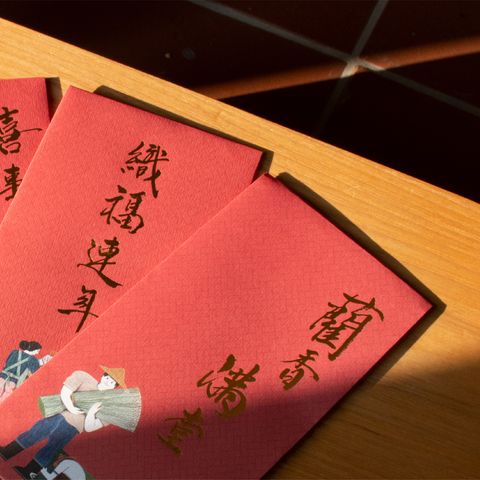 喜事
織福連年
藺香滿堂